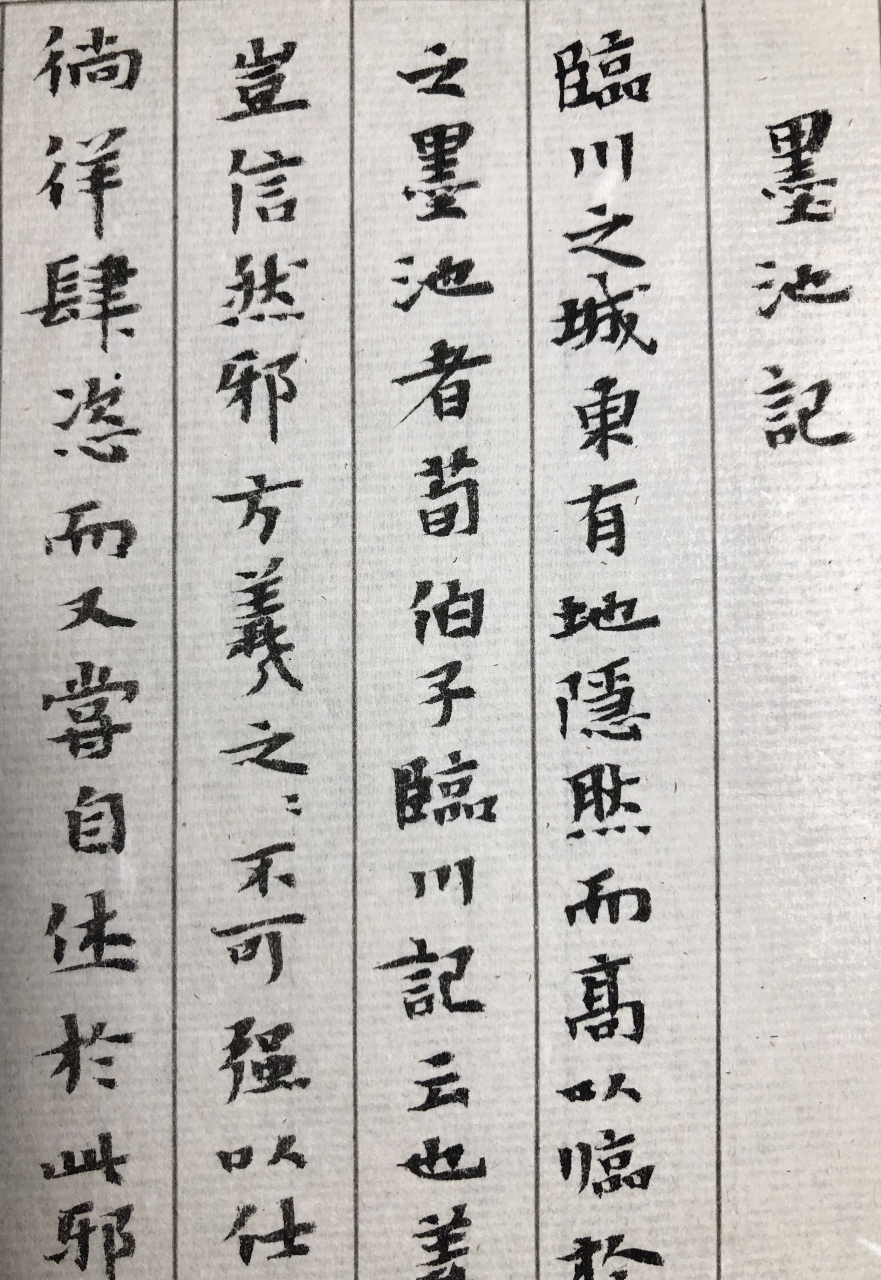 墨池記
臨川之城東有地隱然而高以臨於
之墨池者荀伯子臨川記云也羲
豈信然邪方羲之之不可强以仕
徜徉肆恣而又嘗自休於此邪